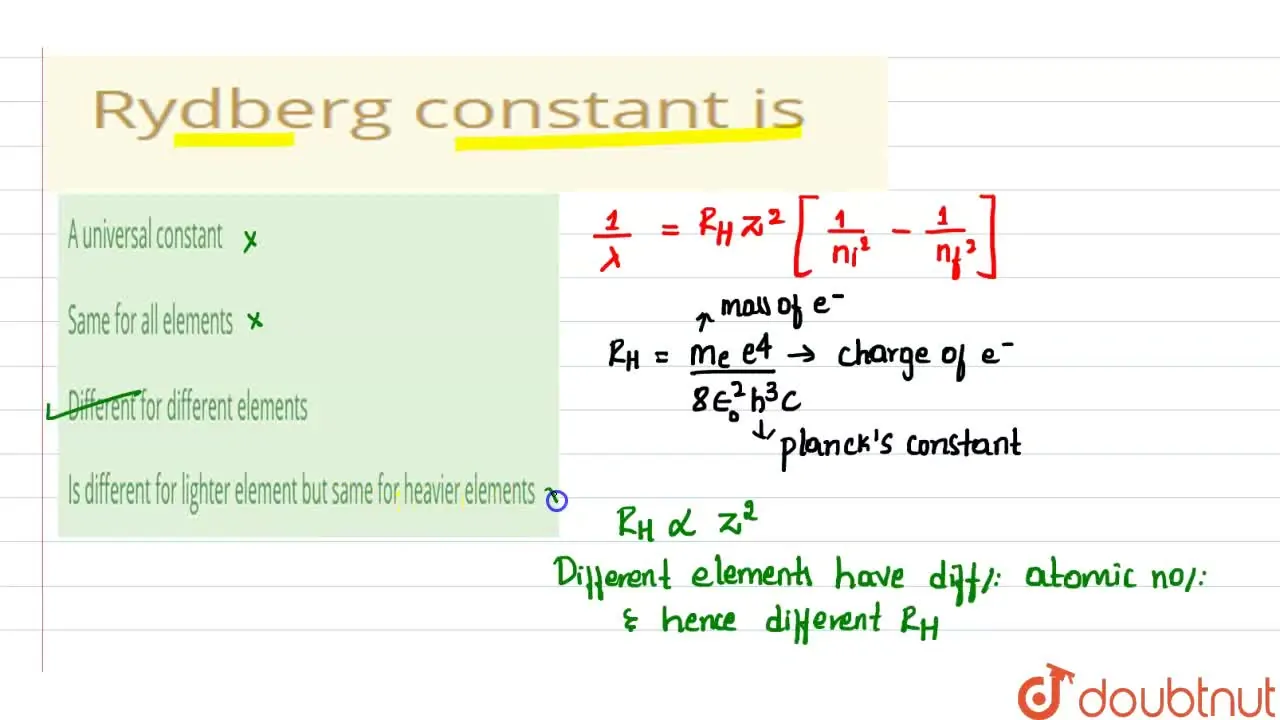 Rydberg constant is
A universal constant x
Same for all elements x
Different for different elements
Is different for lighter element but same for heavier elements
1/λ = R_H Z² [1/n_i² − 1/n_f²]
↗ mass of e⁻
R_H = m_e e⁴ / 8ε₀² h³ c → charge of e⁻
↓ planck's constant
R_H α Z²
Different elements have diff/: atomic no/:
& hence different R_H
doubtnut